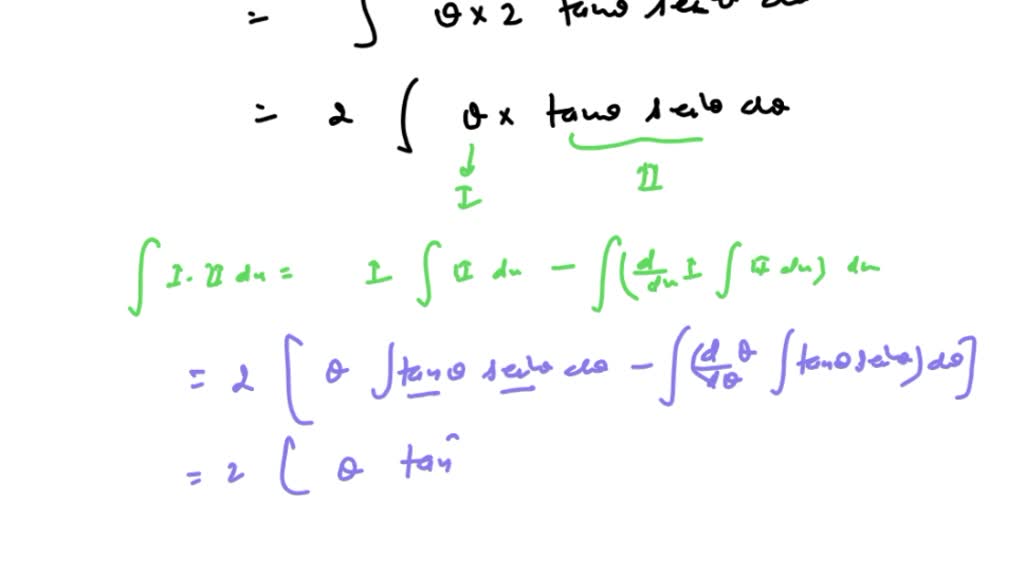 = ∫ θ × 2 tanθ sec²θ dθ
= 2 ∫ θ × tanθ sec²θ dθ
I II
∫ I . II du = I ∫ II du − ∫ (d/du I ∫ II du) du
= 2 [ θ ∫ tanθ sec²θ dθ − ∫ (d/dθ θ ∫ tanθ sec²θ) dθ ]
= 2 [ θ tan